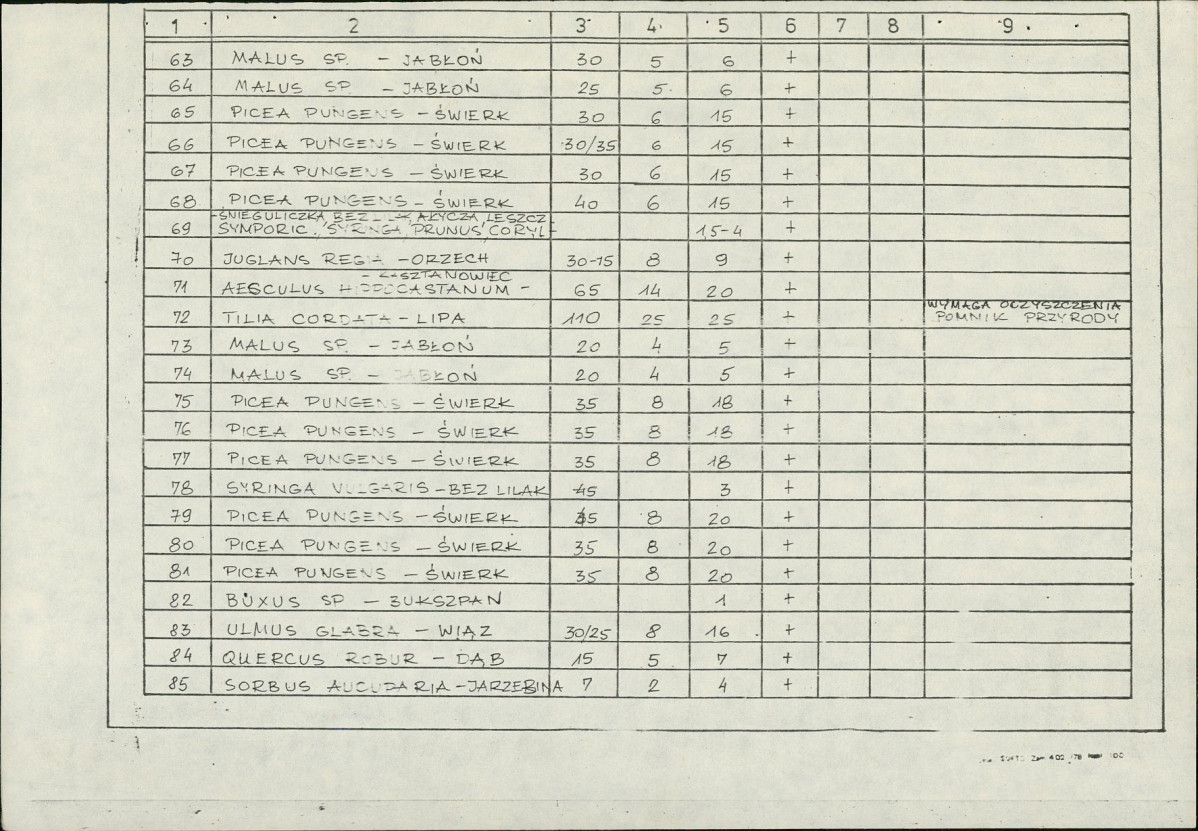 1 2 3 4 5 6 7 8 9
63 MALUS SP. – JABŁOŃ 30 5 6 +
64 MALUS SP – JABŁOŃ 25 5 6 +
65 PICEA PUNGENS – ŚWIERK 30 6 15 +
66 PICEA PUNGENS – ŚWIERK 30/35 6 15 +
67 PICEA PUNGENS – ŚWIERK 30 6 15 +
68 PICEA PUNGENS – ŚWIERK 40 6 15 +
-ŚNIEGULICZKA, BEZ LILAK, AŁYCZA, LESZCZ-
69 SYMPORIC., SYRINGA, PRUNUS, CORYL- 1,5-4 +
70 JUGLANS REGIA – ORZECH 30-15 8 9 +
– KASZTANOWIEC
71 AESCULUS HIPPOCASTANUM – 65 14 20 +
WYMAGA OCZYSZCZENIA
72 TILIA CORDATA – LIPA 110 25 25 + POMNIK PRZYRODY
73 MALUS SP. – JABŁOŃ 20 4 5 +
74 MALUS SP. – JABŁOŃ 20 4 5 +
75 PICEA PUNGENS – ŚWIERK 35 8 18 +
76 PICEA PUNGENS – ŚWIERK 35 8 18 +
77 PICEA PUNGENS – ŚWIERK 35 8 18 +
78 SYRINGA VULGARIS – BEZ LILAK 45 3 +
79 PICEA PUNGENS – ŚWIERK 8 20 +
80 PICEA PUNGENS – ŚWIERK 35 8 20 +
81 PICEA PUNGENS – ŚWIERK 35 8 20 +
82 BUXUS SP – BUKSZPAN 1 +
83 ULMUS GLABRA – WIĄZ 30/25 8 16 +
84 QUERCUS ROBUR – DĄB 15 5 7 +
85 SORBUS AUCUPARIA – JARZĘBINA 7 2 4 +